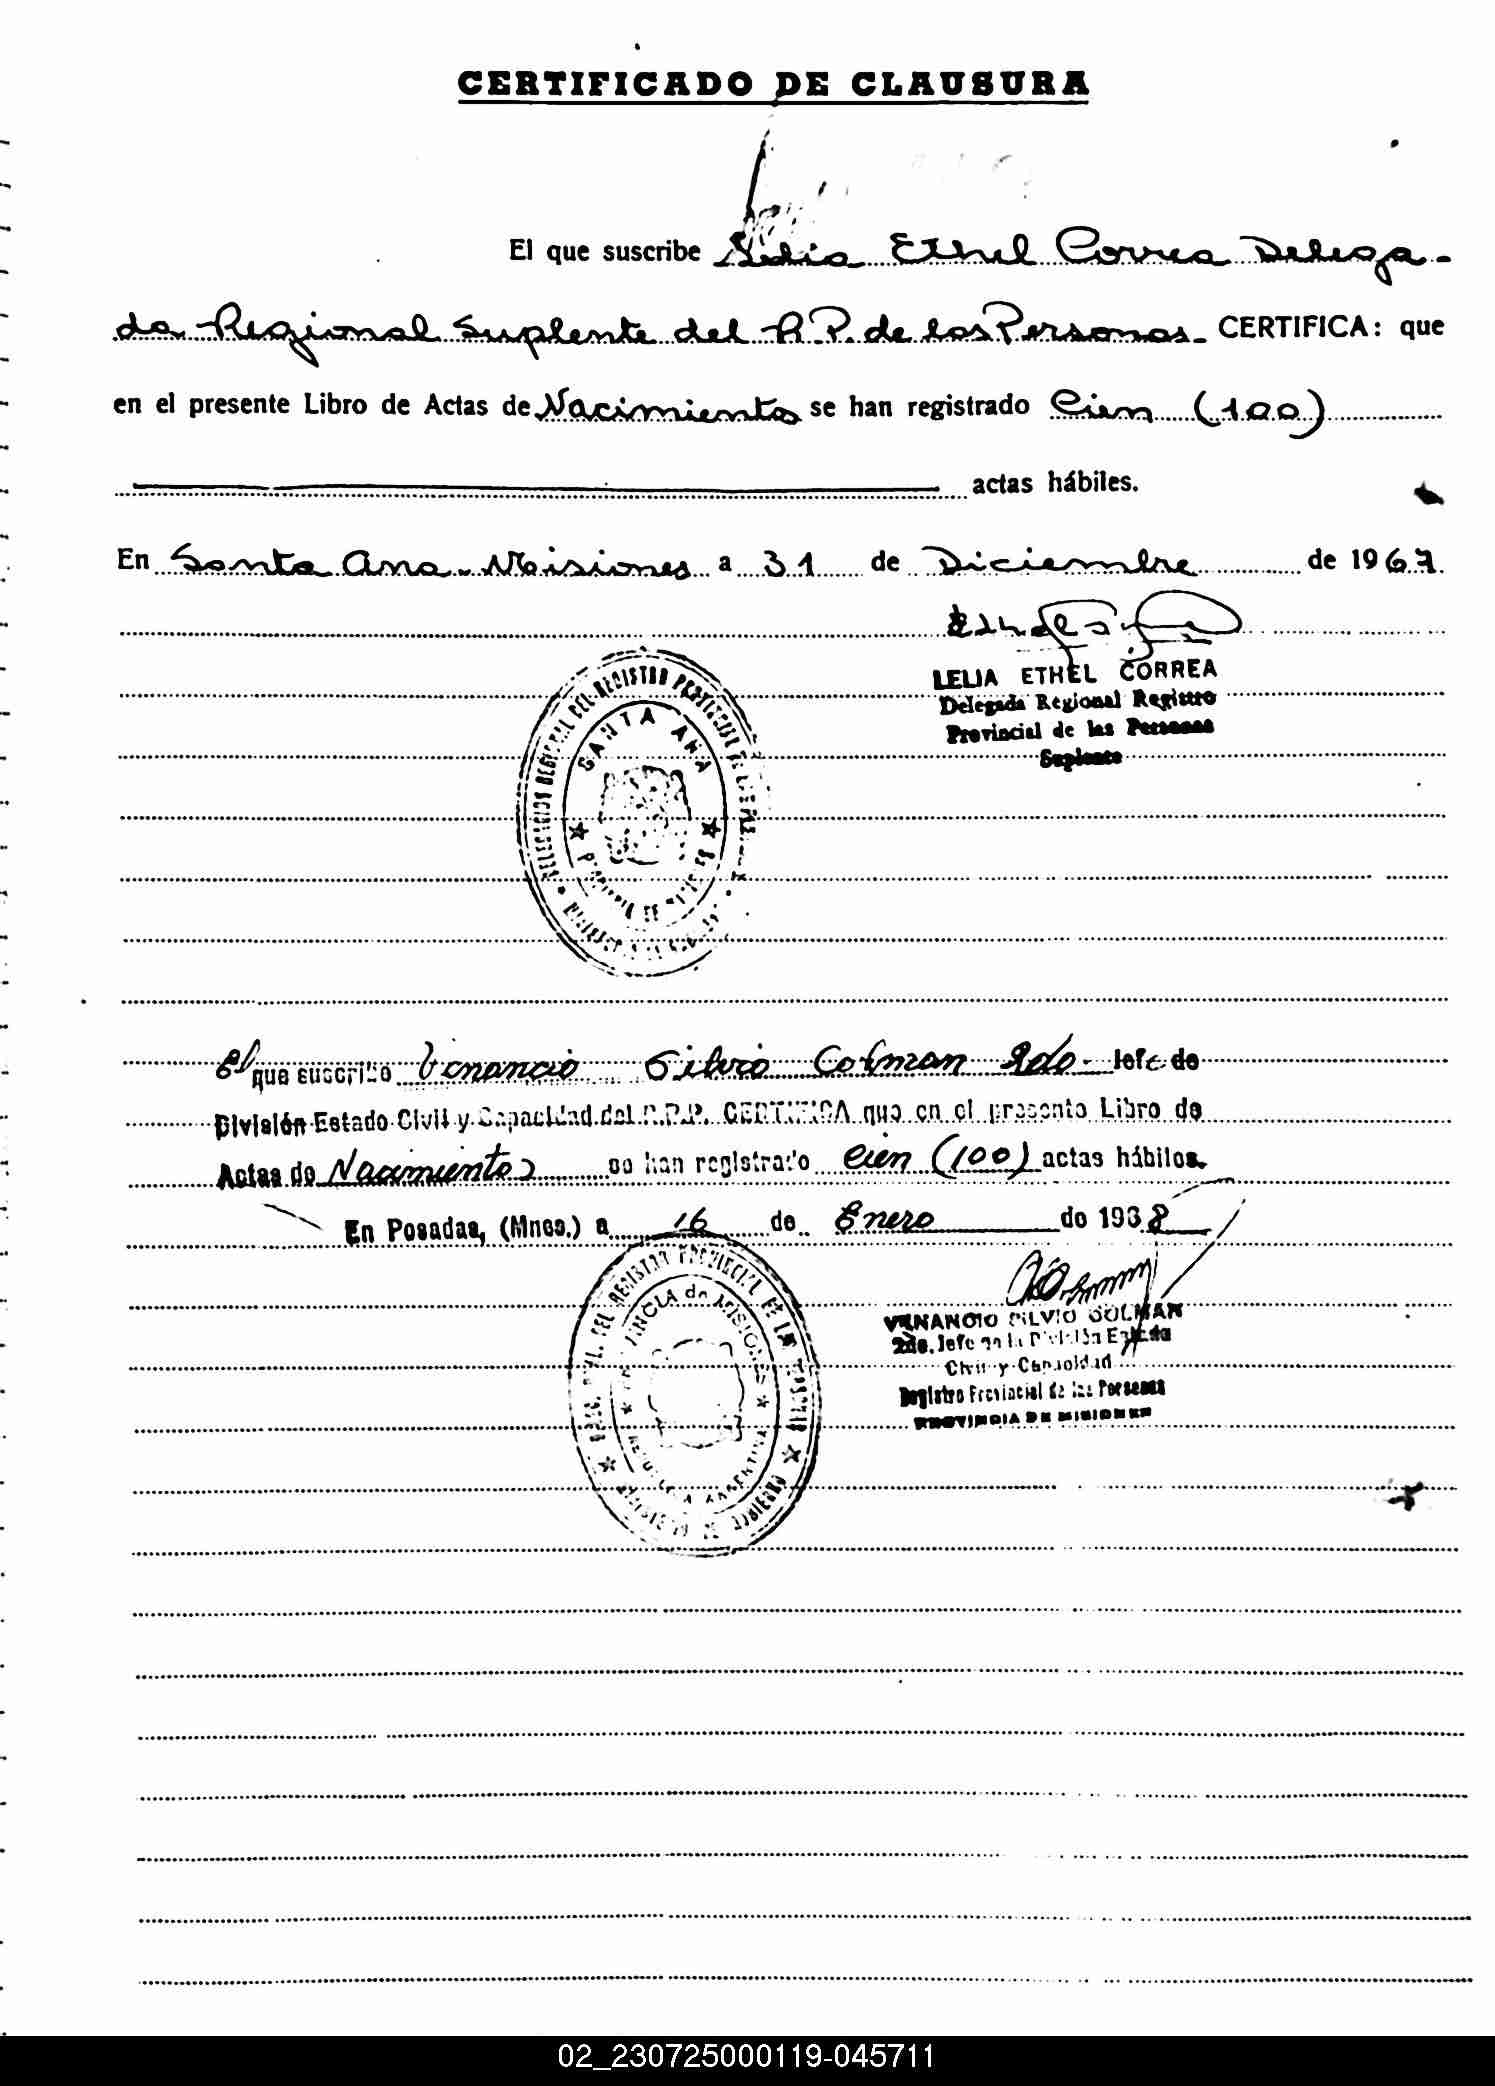 CERTIFICADO DE CLAUSURA
El que suscribe Lelia Ethel Correa Delega-
da Regional Suplente del R.P. de las Personas. CERTIFICA: que
en el presente Libro de Actas de Nacimientos se han registrado Cien (100)
actas hábiles.
En Santa Ana - Misiones a 31 de Diciembre de 1967
LELIA ETHEL CORREA
Delegada Regional Registro
Provincial de las Personas
Suplente
DELEGACION REGIONAL DEL REGISTRO PROVINCIAL DE LAS
SANTA ANA
El que suscribe Venancio Silvio Colman 2do. Jefe de
División Estado Civil y Capacidad del R.P.P. CERTIFICA que en el presente Libro de
Actas de Nacimientos se han registrado cien (100) actas hábiles.
En Posadas, (Mnes.) a 16 de Enero de 1968
VENANCIO SILVIO COLMAN
2do. Jefe de la División Estado
Civil y Capacidad
Registro Provincial de las Personas
PROVINCIA DE MISIONES
DEL REGISTRO PROVINCIAL DE LAS PERSONAS
PROVINCIA de MISIONES
REPUBLICA ARGENTINA
MINISTERIO DE GOBIERNO
02_230725000119-045711